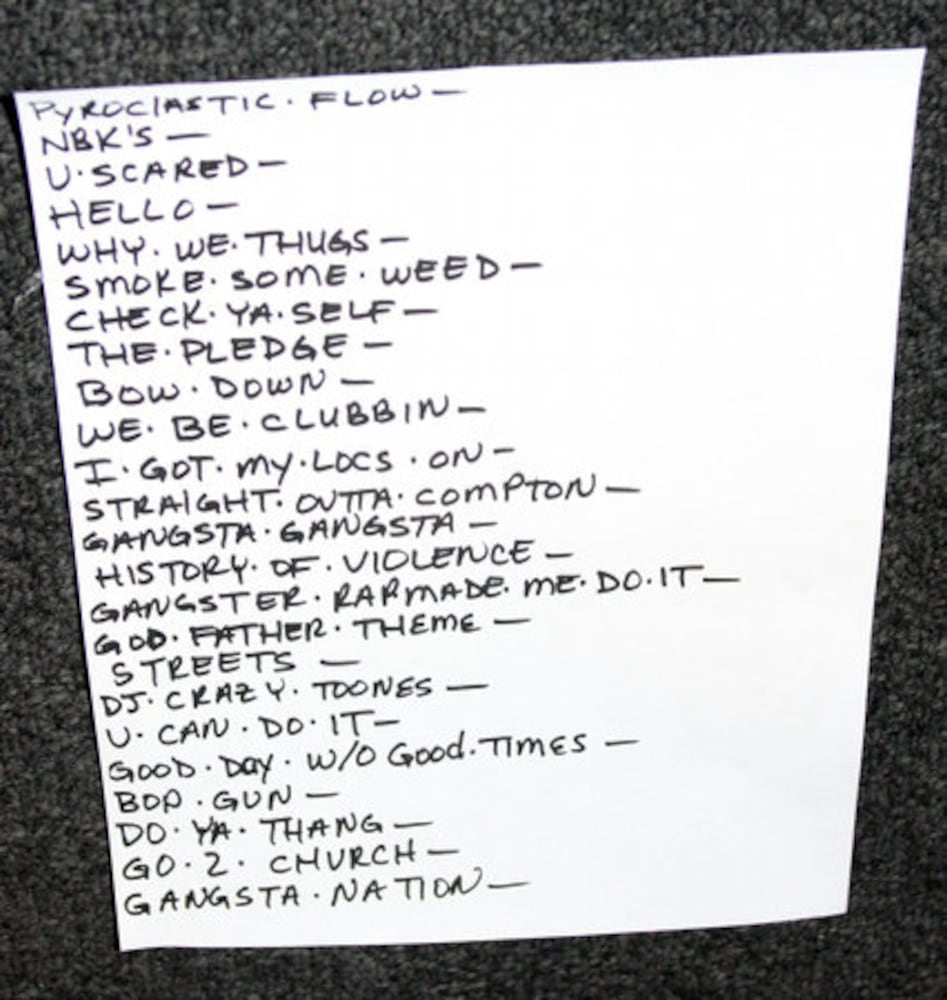 PYROCLASTIC · FLOW —
NBK'S —
U · SCARED —
HELLO —
WHY · WE · THUGS —
SMOKE · SOME · WEED —
CHECK · YA · SELF —
THE · PLEDGE —
BOW · DOWN —
WE · BE · CLUBBIN —
I · GOT · MY · LOCS · ON —
STRAIGHT · OUTTA · COMPTON —
GANGSTA · GANGSTA —
HISTORY · OF · VIOLENCE —
GANGSTER · RAP MADE · ME · DO · IT —
GOD · FATHER · THEME —
STREETS —
DJ · CRAZY · TOONES —
U · CAN · DO · IT —
GOOD · DAY · W/O GOOD · TIMES —
BOP · GUN —
DO · YA · THANG —
GO · 2 · CHURCH —
GANGSTA · NATION —